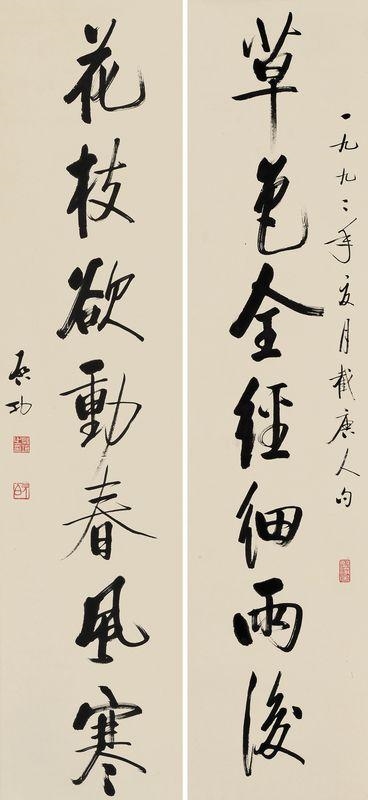 一九九二年夏月截唐人句
草色全經細雨後
花枝欲動春風寒
启功